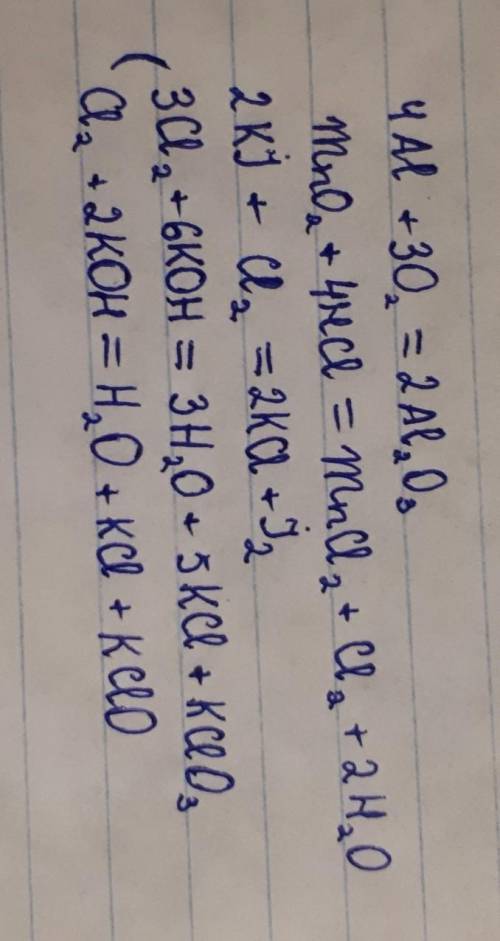 4Al + 3O₂ = 2Al₂O₃
MnO₂ + 4HCl = MnCl₂ + Cl₂ + 2H₂O
2KJ + Cl₂ = 2KCl + J₂
3Cl₂ + 6KOH = 3H₂O + 5KCl + KClO₃
( Cl₂ + 2KOH = H₂O + KCl + KClO